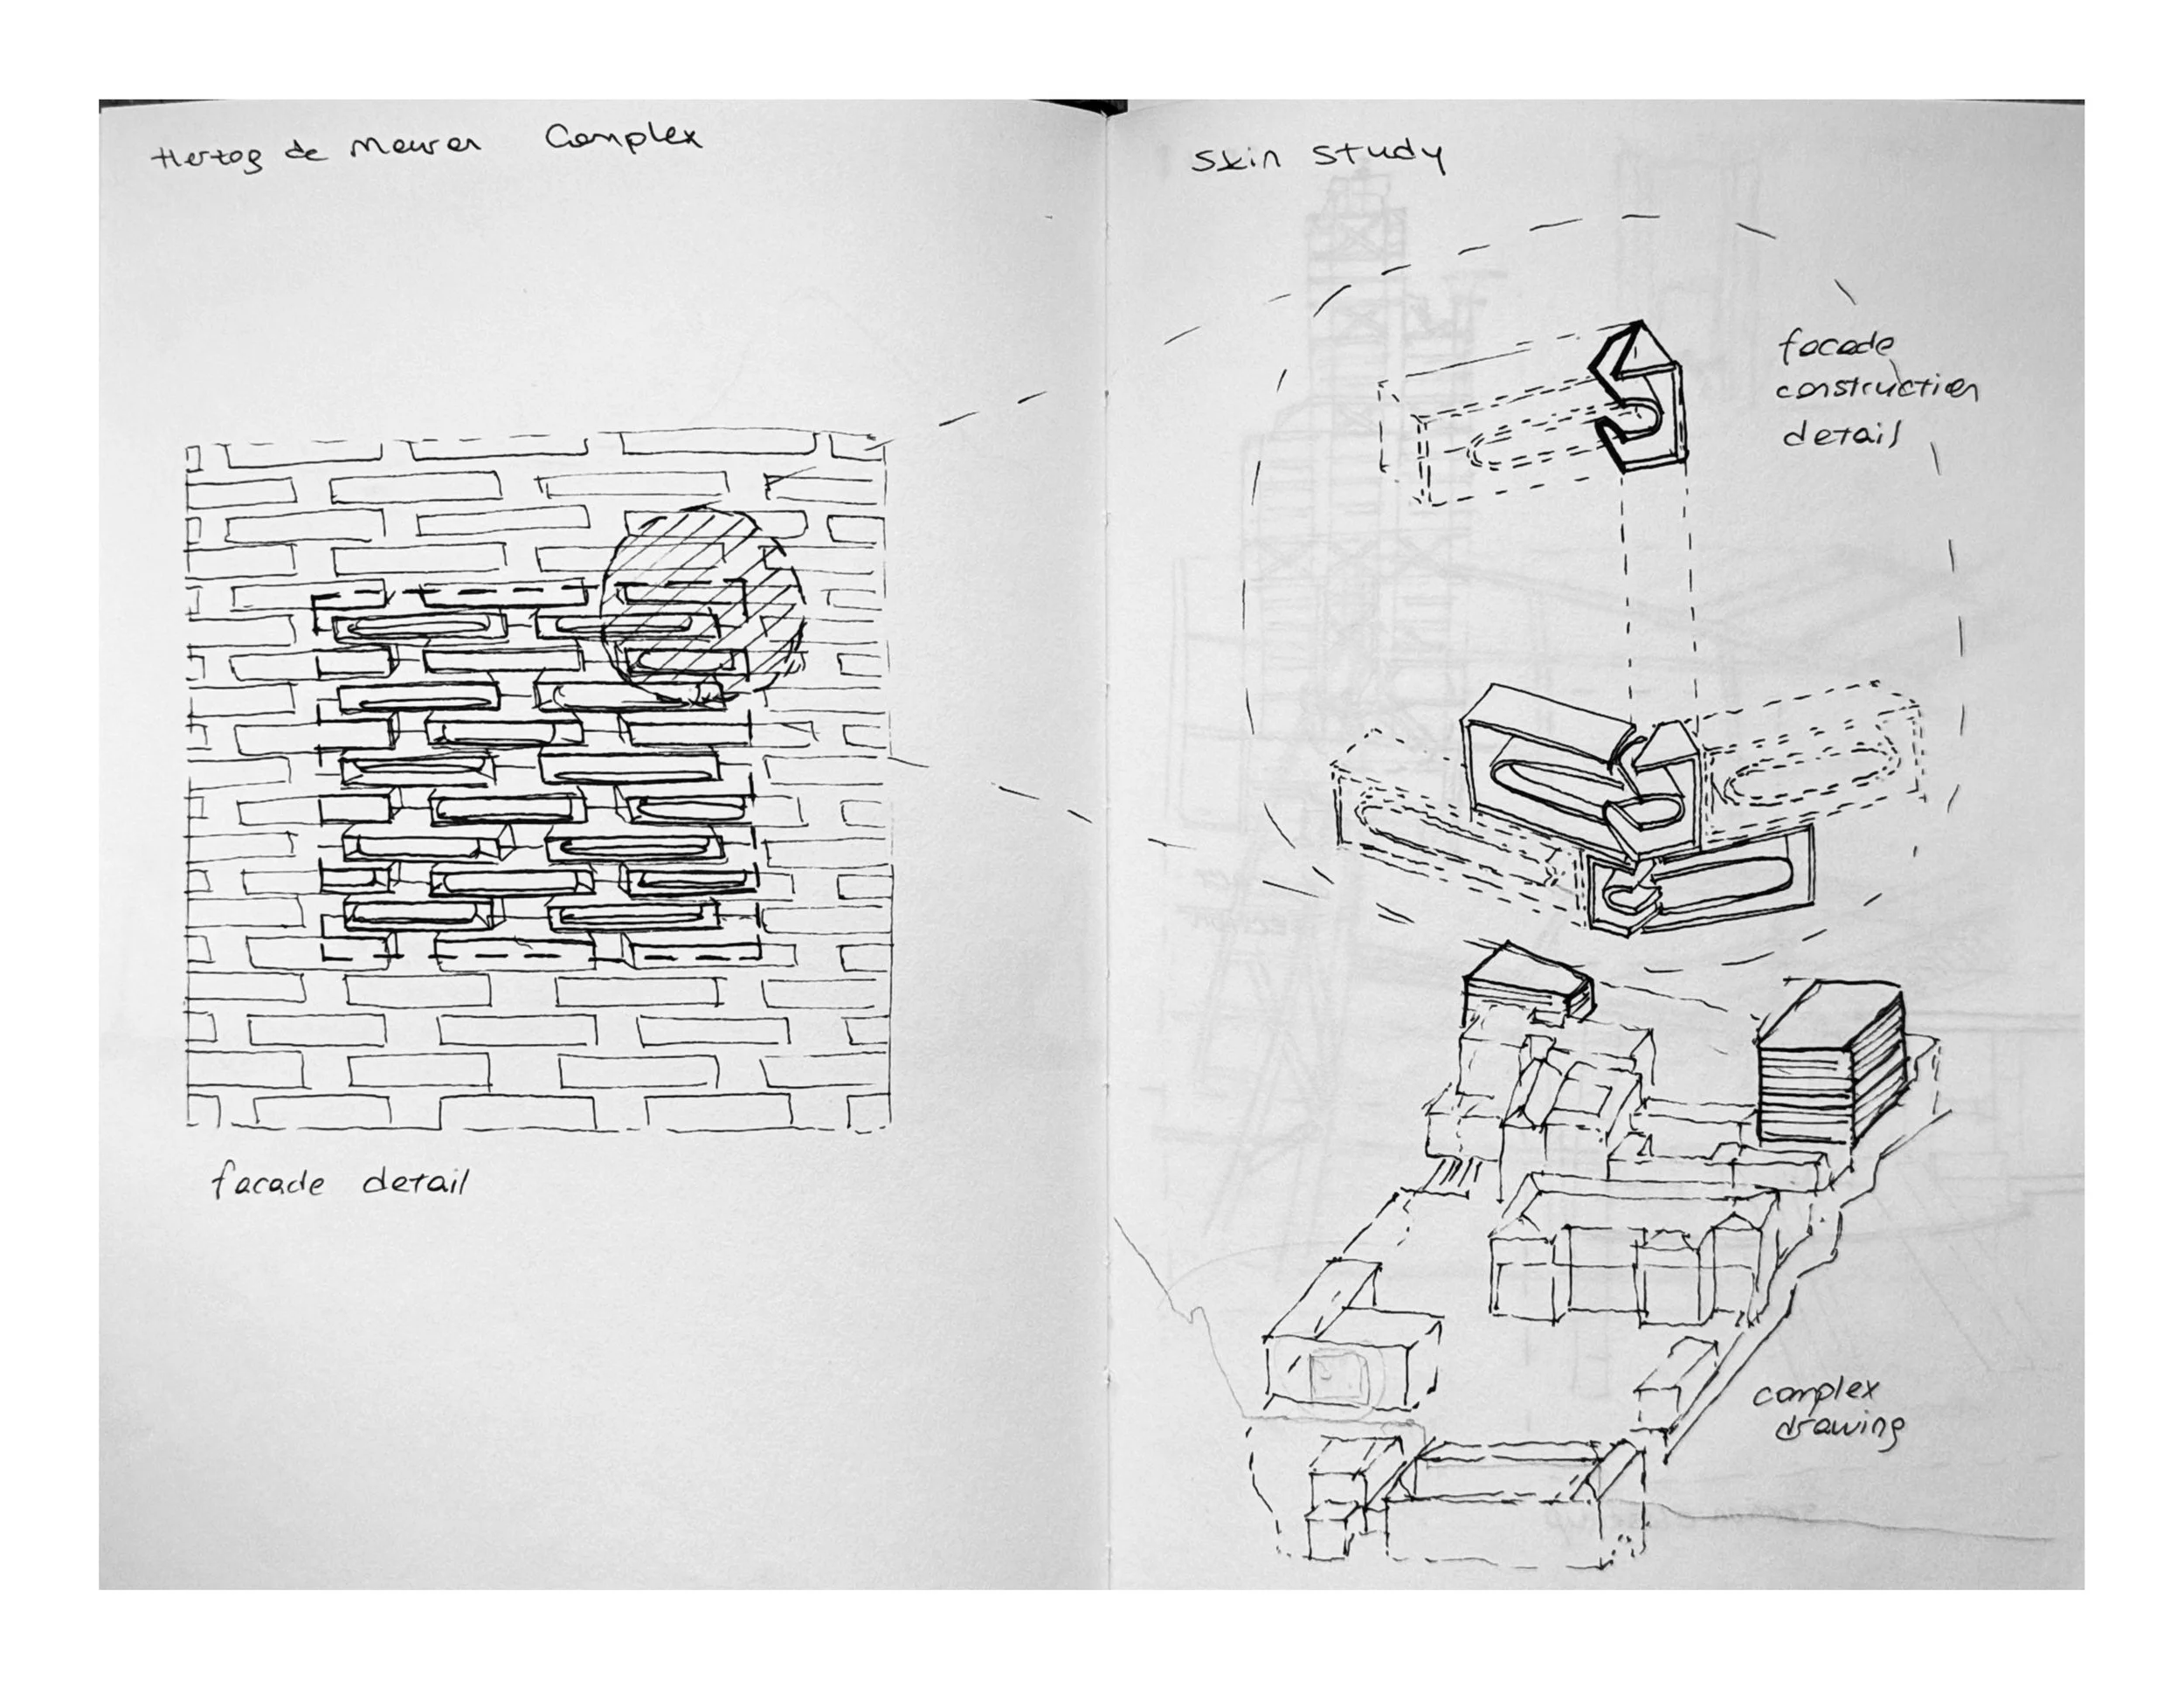 Hertog de Meuron Complex
facade detail
Skin study
facade
construction
detail
complex
drawing